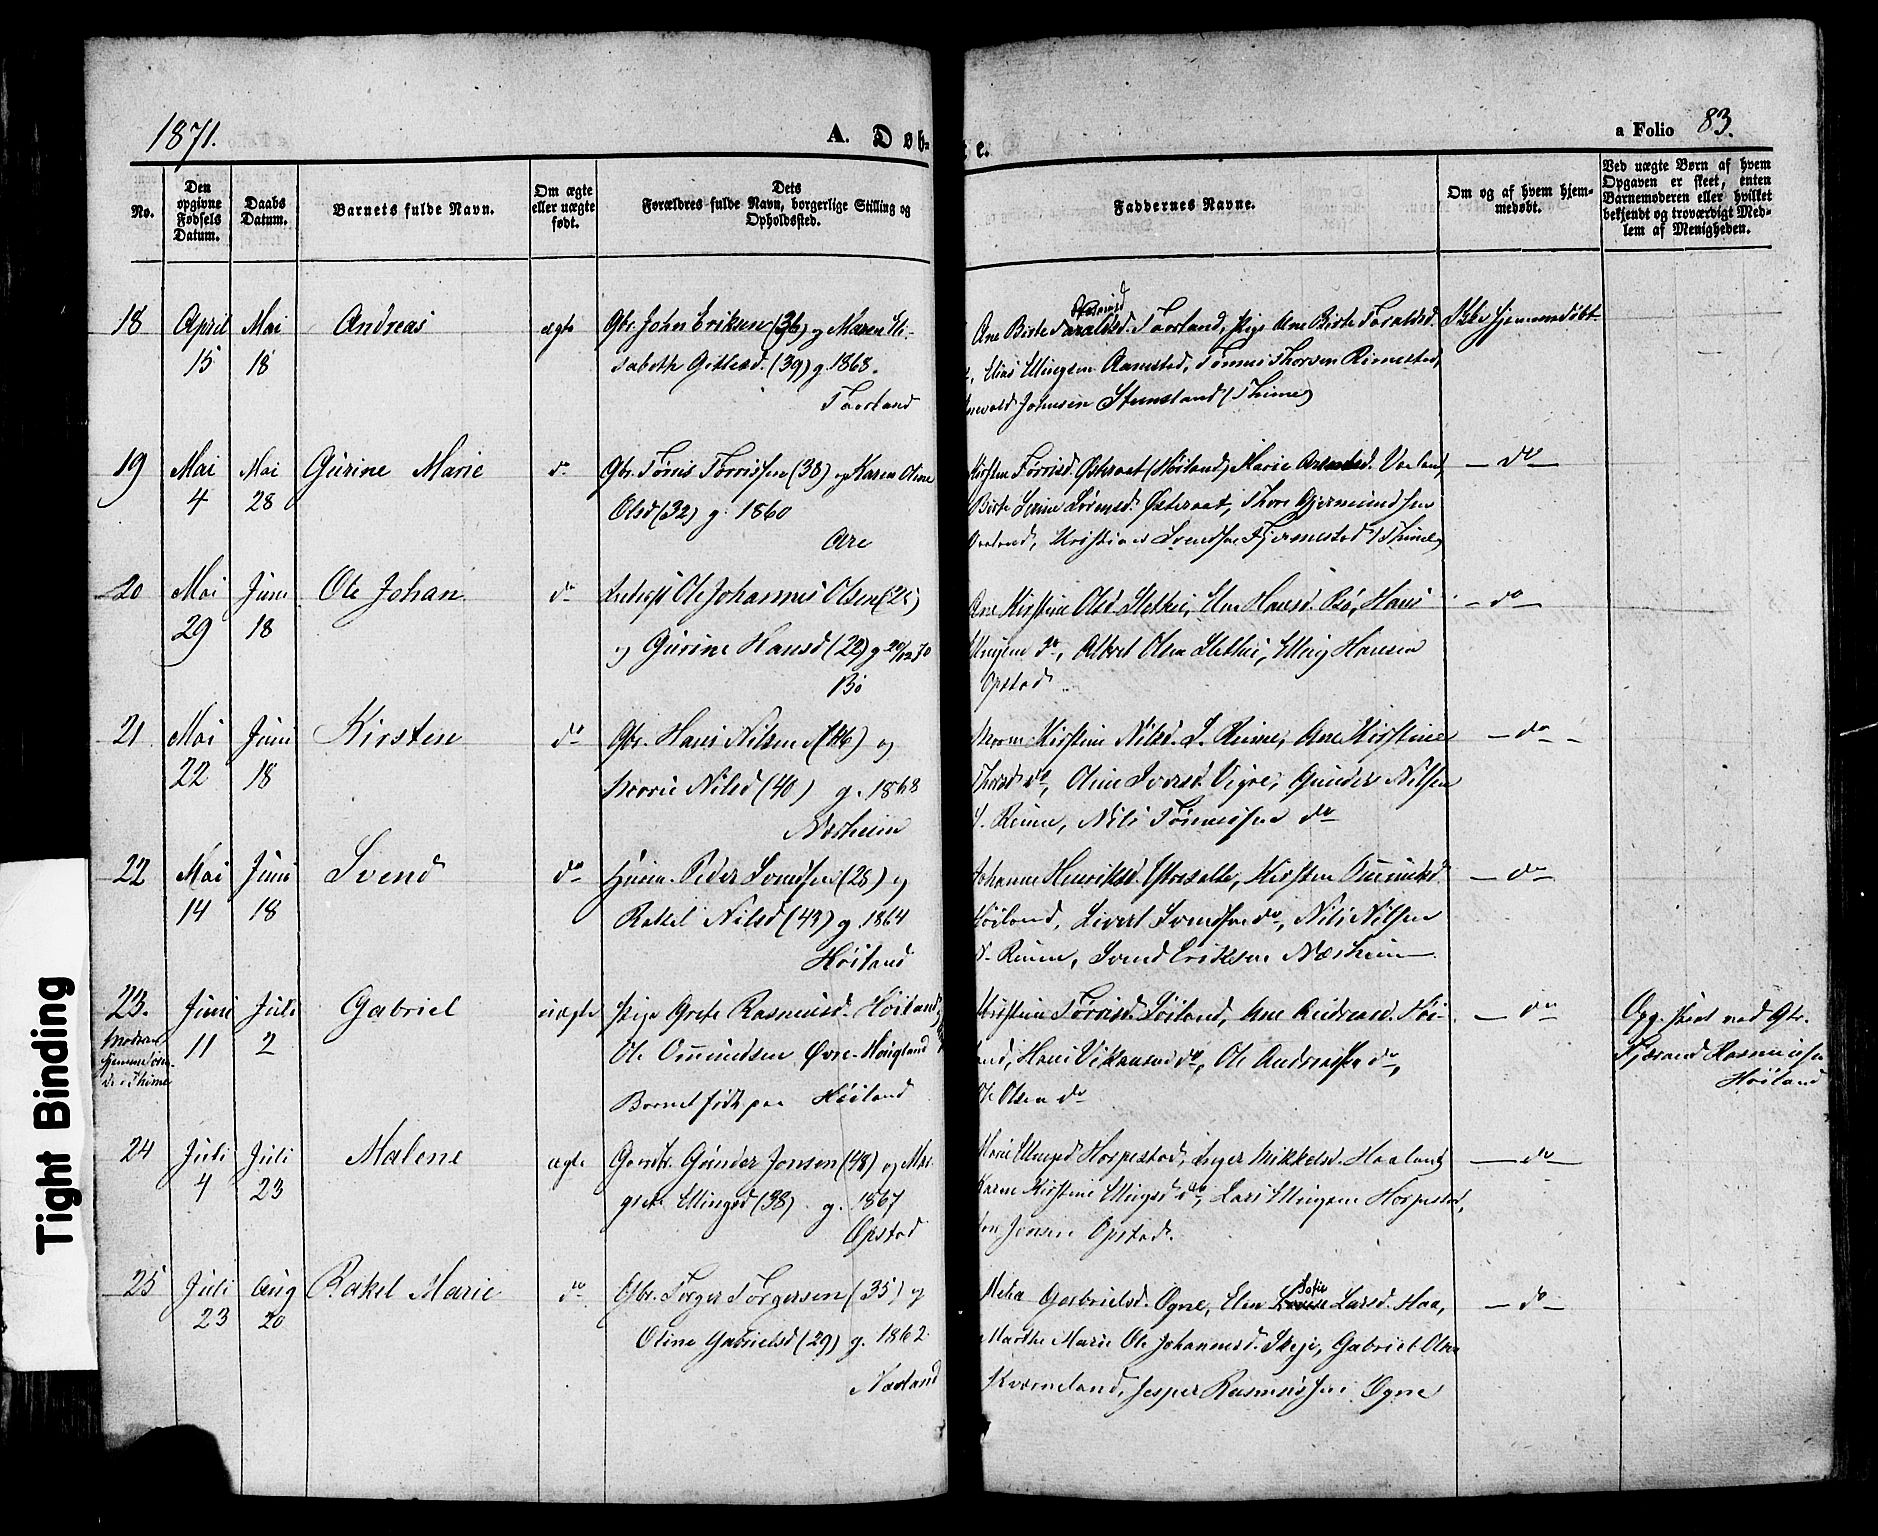 1871.
A. Døb-
te.
a Folio 83.
No.
Den opgivne Fødsels Datum.
Daabs Datum.
Barnets fulde Navn.
Om ægte eller uægte født.
Dets Forældres fulde Navn, borgerlige Stilling og Opholdssted.
Faddernes Navne.
Om og af hvem hjemmedøbt.
Ved uægte Børn af hvem Opgaven er skeet, enten Barnemoderen eller hvilket bekjendt og troværdigt Medlem af Menigheden.
18 April Mai Andreas ægte Gbr. John Eriksen (36) og Maren Eli-
15 18 sabeth Gitlesd. (39) g. 1868.
Taarland
Ane Birte Taarland, Pige Ane Birte Taraldsd. Ikke hjemmedøbt
Elias Ellingsen Aanestad, Tønnes Thorsen Rimestad,
Johnsen Steensland (Thime)
19 Mai Mai Gurine Marie do Gbr. Tørris Tørrissen (38) og Karen Oline
4 28 Olsd (32) g. 1860
Are
Kirsten Tørrisd. Østeraat (Høiland) Marie Vaaland, do
Birte Serine Østeraat, Thore Gjermundsen
Vaaland, Kristian Svendsen Fjermestad (Thime)
20 Mai Juni Ole Johan do Ole Johannes Olsen (25)
29 18 og Gurine Hansd (22) g 29/12 70
Bø
Ane Kirstine Olsd. Slethei, Elen Hansd. Bø, Hans do
do, Albert Olsen Slethei, Elling Hansen
Opstad
21 Mai Juni Kirsten do Gbr. Hans Nilsen (46) og
22 18 Nilsd (40) g. 1868
Næsheim
Kirstine Nilsd. S. Reime, Ane Kirstine do
do, Oline Iversd. Vigre, Gunder Nilsen
S. Reime, Nils Tønnessen do
22 Mai Juni Svend do Huusm. Peder Svendsen (28) og
14 18 Rakel Nilsd (43) g. 1864
Høiland
Johanne Henriksd. Kirsten Omundsd. do
Høiland, Sivert Svendsen do, Nils Nilsen
N. Reime, Svend Eriksen Næsheim
23. Juni Juli Gabriel uægte Pige Grete Rasmusd. Høiland,
11 2 Ole Omundsen Øvre-Haugland
Moderens
Hjemme
i Thime
Barnet født paa Høiland
Kirstine Tørrisd. Høiland, Ane Andreasd. Høi- do
land, Hans do, Ole Andreassen do,
Ole Olsen do
Opg. skeet ved Gbr.
Tjærand Rasmussen
Høiland
24 Juli Juli Malene ægte Gunder Jonsen (48) og Mar-
4 23 grete Ellingsd (38) g. 1867
Opstad
Marie Ellingsd Horpestad, Inger Mikkelsd. Haaland, do
Karen Kirstine Ellingsd do, Lars Ellingsen Horpestad,
Jon Jonsen Opstad.
25 Juli Aug Rakel Marie do Gbr. Torger Torgersen (35) og
23 20 Oline Gabrielsd (29) g. 1862
Nærland
Metia Gabrielsd. Ogne, Elen Sofie Larsd. Haa, do
Marthe Marie Ole Johannesd. Skeje, Gabriel Olsen
Kværneland, Jesper Rasmussen Ogne
Tight Binding